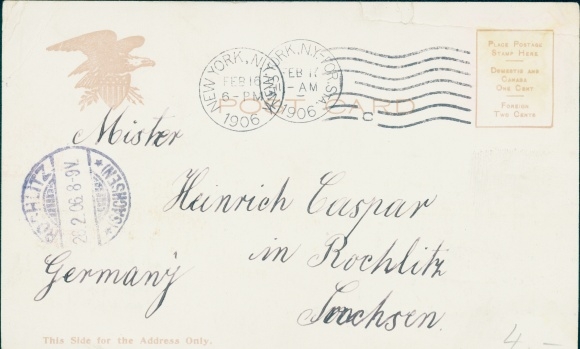 PLACE POSTAGE
STAMP HERE
DOMESTIC AND
CANADA
ONE CENT
FOREIGN
TWO CENTS
NEW YORK, N.Y.
FEB 16
6-PM
1906
FEB 17
-AM
1906
POST CARD
Mister
ROCHLITZ
(SACHSEN)
28.2.06.8-9V.
Heinrich Caspar
in Rochlitz
Germany
Sachsen.
This Side for the Address Only.
4.-